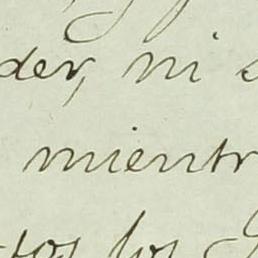 der, ni
mientr
tos los